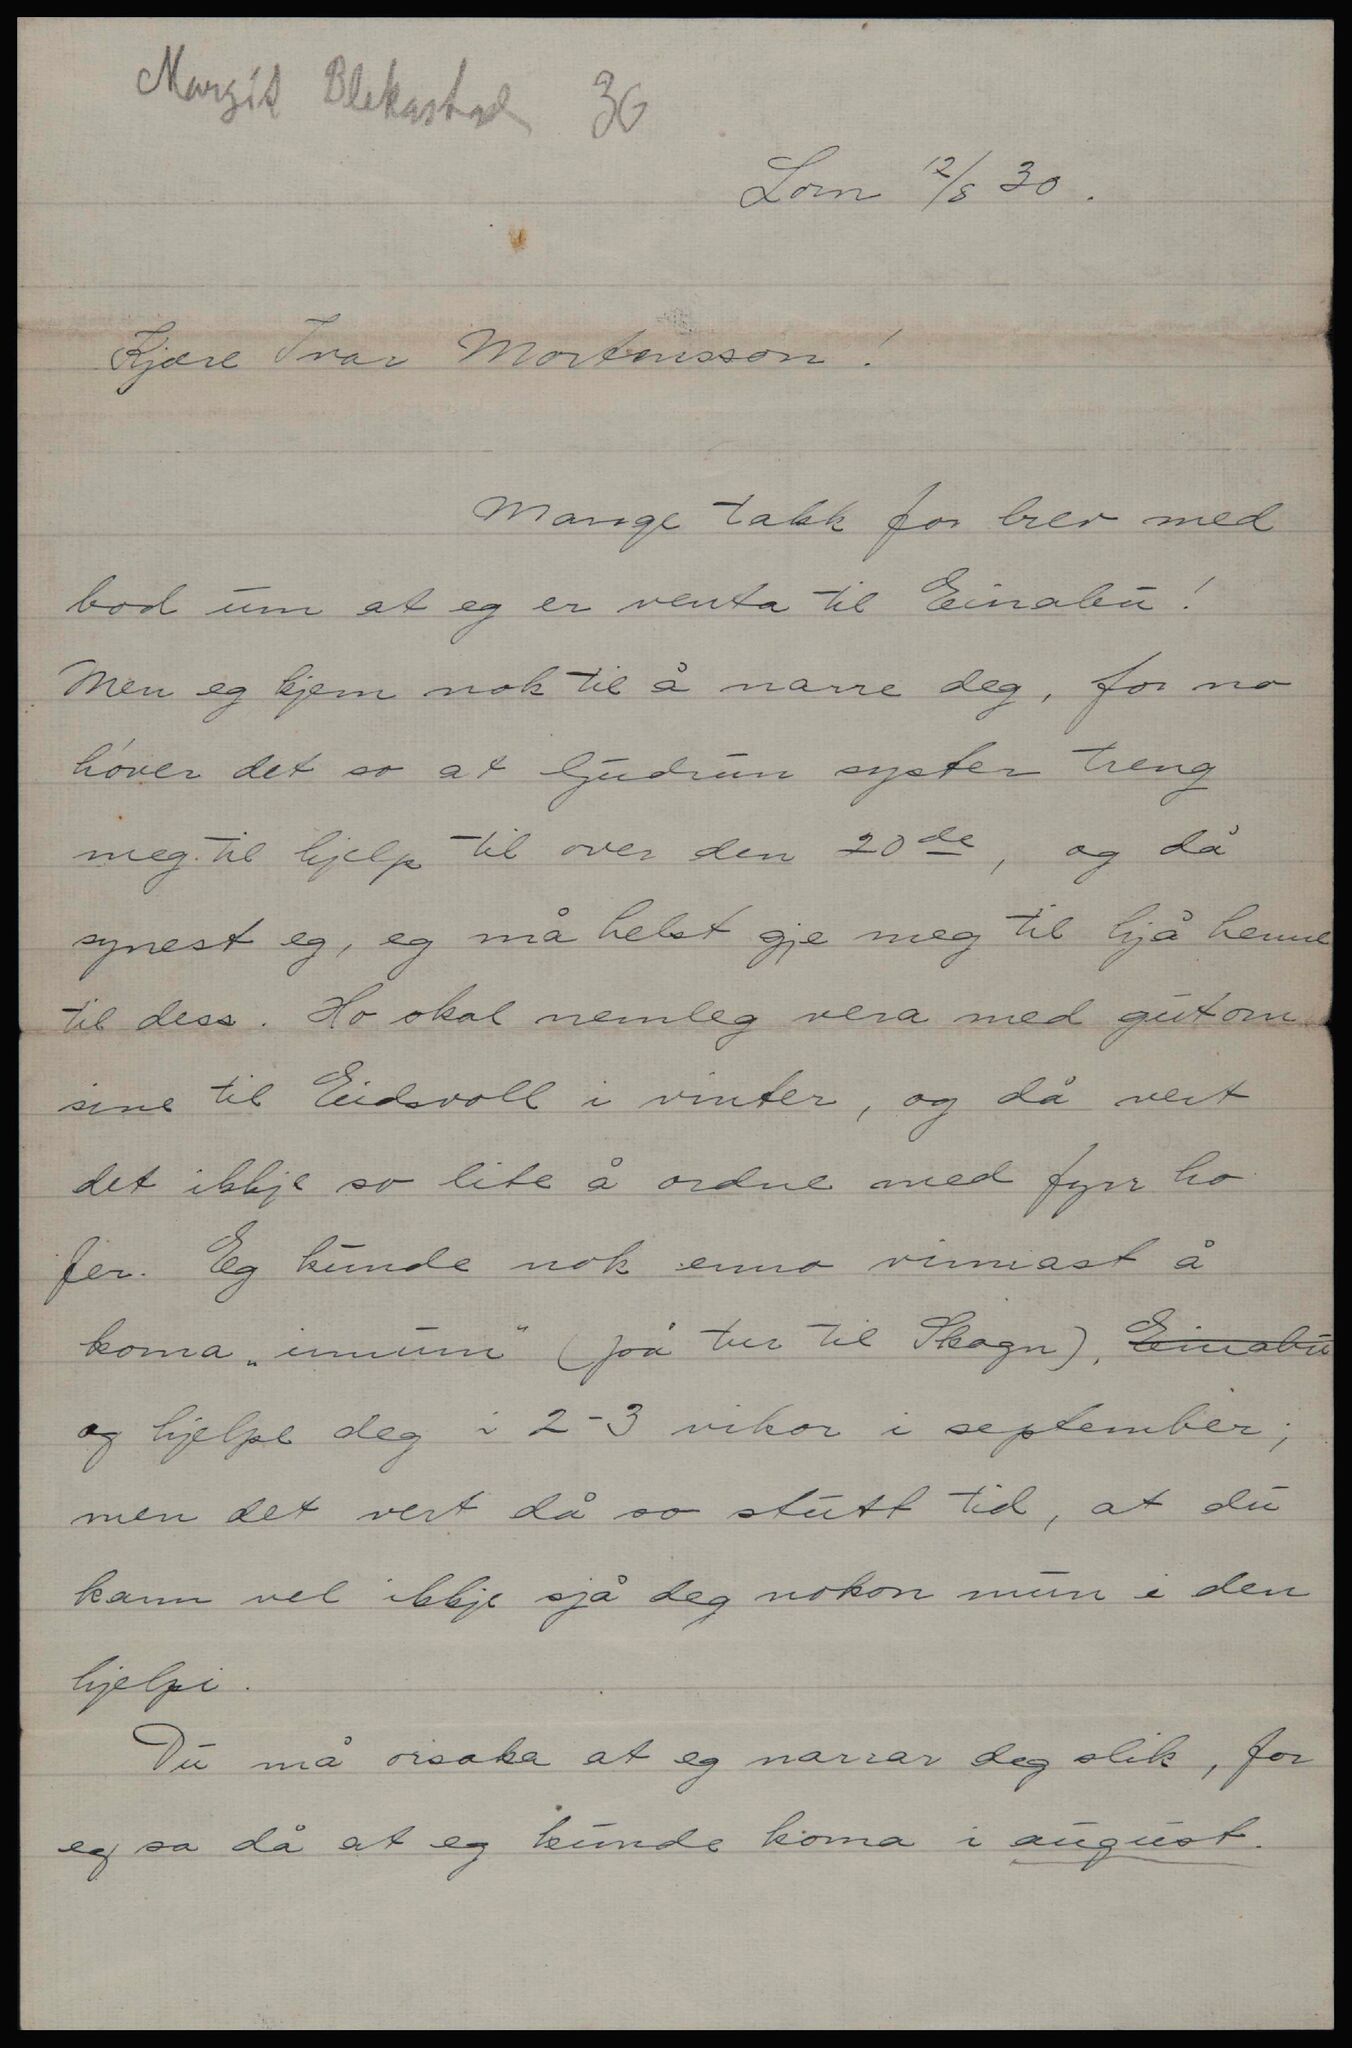 Margit Blekastad 30
Lom 12/8 30.
Kjære Ivar Mortensson!
Mange takk for brev med
bod um at eg er venta til Einabu!
Men eg kjem nok til å narre deg, for no
høver det so at Gudrun syster treng
meg til hjelp til over den 20de, og då
synest eg, eg må helst gje meg til hjå henne
til dess. Ho skal nemleg vera med gutom
sine til Eidsvoll i vinter, og då vert
det ikkje so lite å ordne med fyrr ho
fer. Eg kunde nok enno vinnast å
koma „innum" (på tur til Skogn), Einabu
og hjelpe deg i 2-3 vikor i september;
men det vert då so stutt tid, at du
kann vel ikkje sjå deg nokon mun i den
hjelpi.
Du må orsaka at eg narrar deg slik, for
eg sa då at eg kunde koma i august.